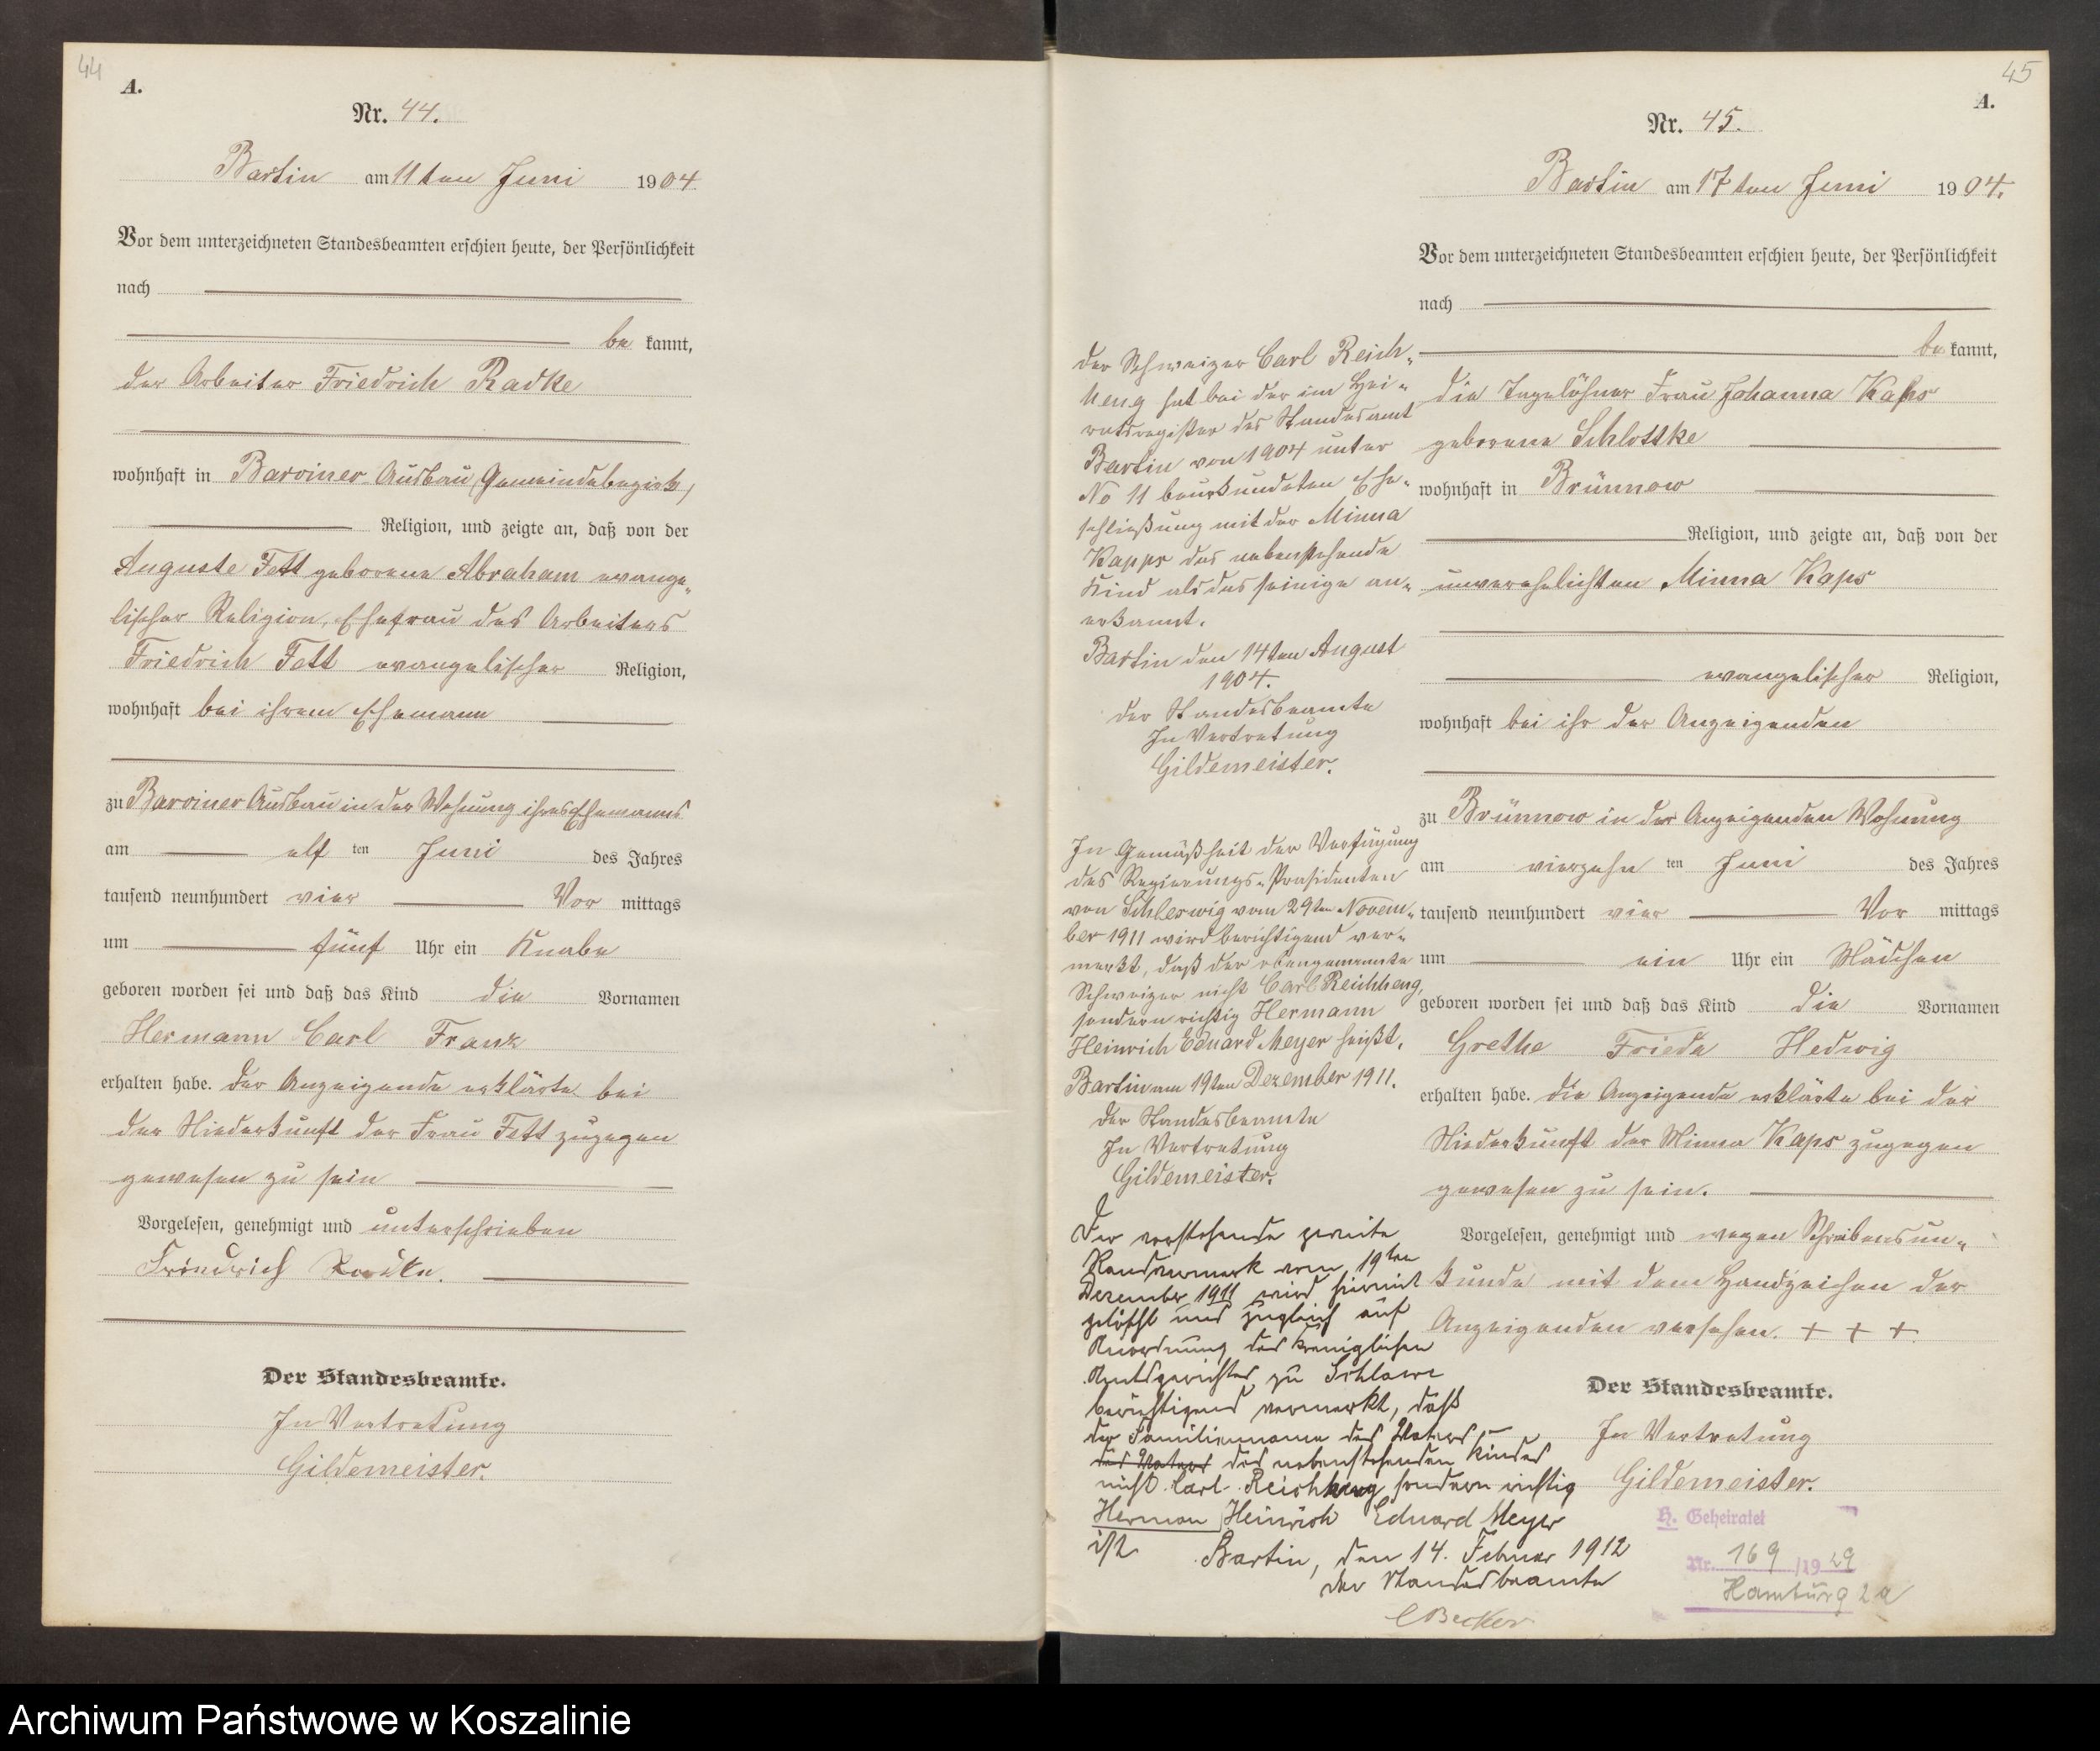 44
A.
Nr. 44.
Bartin am 11 ten Juni 1904
Vor dem unterzeichneten Standesbeamten erschien heute, der Persönlichkeit
nach
be kannt,
der Arbeiter Friedrich Radke
wohnhaft in Barviner Ausbau, Gemeindebezirk,
Religion, und zeigte an, daß von der
Auguste Fett geborene Abraham evange-
lischer Religion, Ehefrau des Arbeiters
Friedrich Fett evangelischer Religion,
wohnhaft bei ihrem Ehemann
zu Barviner Ausbau in der Wohnung ihres Ehemanns
am elf ten Juni des Jahres
tausend neunhundert vier Vor mittags
um fünf Uhr ein Knabe
geboren worden sei und daß das Kind die Vornamen
Hermann Carl Franz
erhalten habe. Der Anzeigende erklärte bei
der Niederkunft der Frau Fett zugegen
gewesen zu sein
Vorgelesen, genehmigt und unterschrieben
Friedrich Radke.
Der Standesbeamte.
In Vertretung
Gildemeister.
45
A.
Nr. 45.
Bartin am 17 ten Juni 1904.
Vor dem unterzeichneten Standesbeamten erschien heute, der Persönlichkeit
nach
be kannt,
die Tagelöhner Frau Johanna Kaps
geborene Schlottke
wohnhaft in Brünnow
Religion, und zeigte an, daß von der
unverehelichten Minna Kaps
evangelischer Religion,
wohnhaft bei ihr der Anzeigenden
zu Brünnow in der Anzeigenden Wohnung
am vierzehn ten Juni des Jahres
tausend neunhundert vier Vor mittags
um ein Uhr ein Mädchen
geboren worden sei und daß das Kind die Vornamen
Grethe Frieda Hedwig
erhalten habe. Die Anzeigende erklärte bei der
Niederkunft der Minna Kaps zugegen
gewesen zu sein.
Vorgelesen, genehmigt und wegen Schreibensun-
kunde mit dem Handzeichen der
Anzeigenden versehen. + + +
Der Standesbeamte.
In Vertretung
Gildemeister.
H. Geheiratet
Nr. 169 /1929
Hamburg 2a
Der Schweizer Carl Reich-
heng hat bei der im Hei-
ratsregister des Standesamt
Bartin von 1904 unter
No 11 beurkundeten Ehe-
schließung mit der Minna
Kapps das nebenstehende
Kind als das seinige an-
erkannt.
Bartin den 14ten August
1904.
Der Standesbeamte
In Vertretung
Gildemeister.
In Gemäßheit der Verfügung
des Regierungs-Präsidenten
von Schleswig vom 29ten Novem-
ber 1911 wird berichtigend ver-
merkt, daß der obengenannte
Schweizer nicht Carl Reichheng,
sondern richtig Hermann
Heinrich Eduard Meyer heißt.
Bartin am 19ten Dezember 1911.
Der Standesbeamte
In Vertretung
Gildemeister.
Der vorstehende zweite
Randvermerk vom 19ten
Dezember 1911 wird hiermit
gelöscht und zugleich auf
Anordnung des Königlichen
Amtsgerichtes zu Schlawe
berichtigend vermerkt, daß
der Familienname des Vaters
des Vaters des nebenstehenden Kindes
nicht Carl Reichheng sondern richtig
Herman Heinrich Eduard Meyer
ist.
Bartin, den 14. Februar 1912
Der Standesbeamte
CBecker
Archiwum Państwowe w Koszalinie